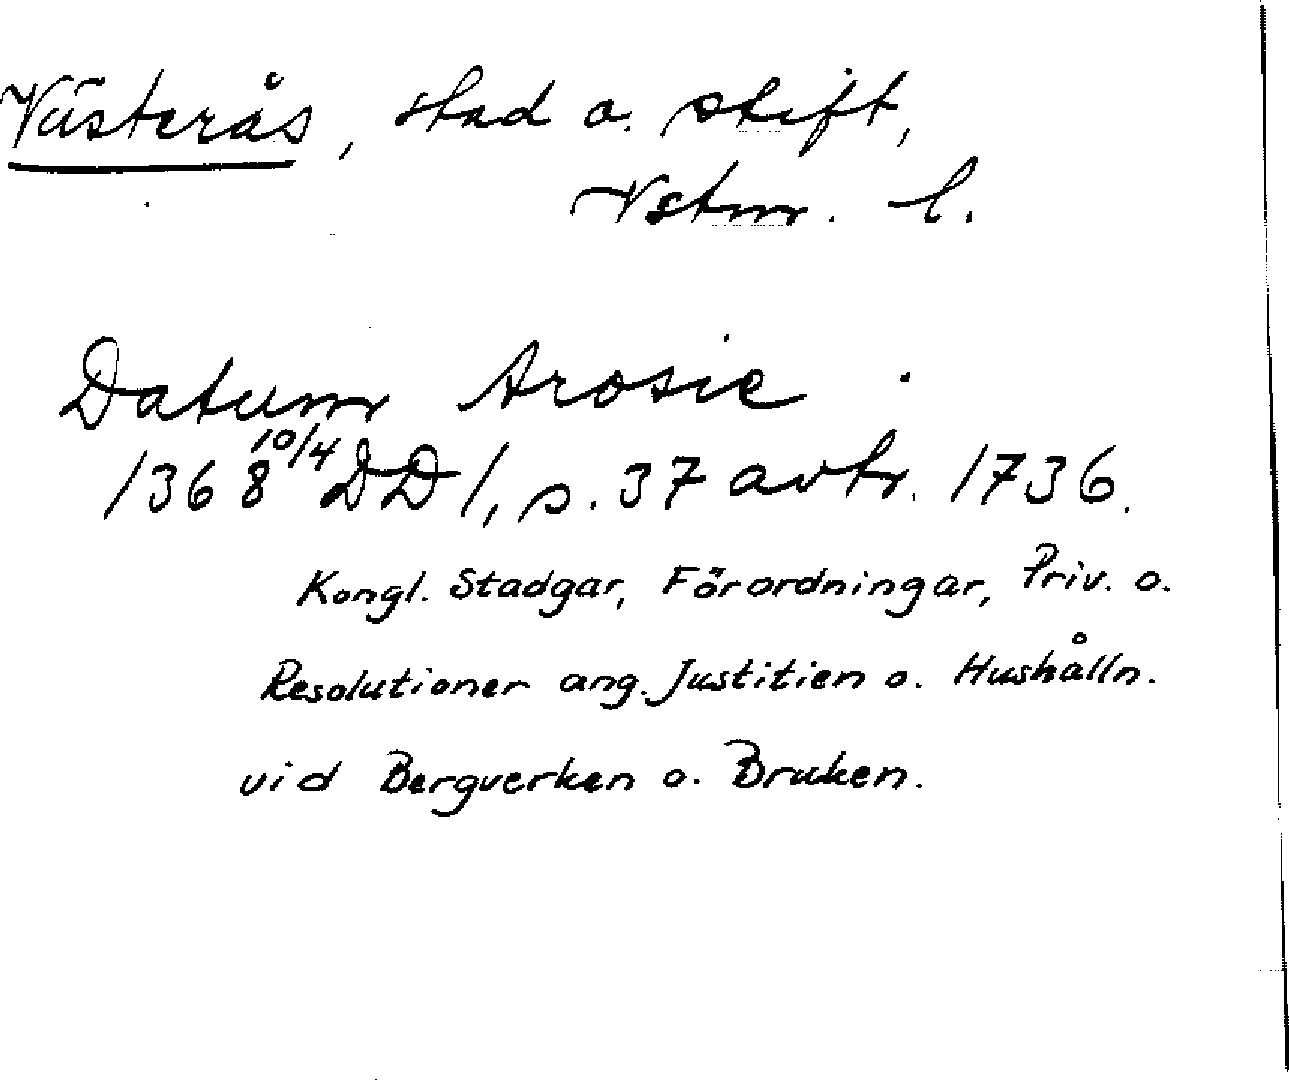 Västerås, stad o. stift,
Vstm. l.
Datum Arosie
1368 10/4 DD 1, s. 37 avtr. 1736.
Kongl. Stadgar, Förordningar, Priv. o.
Resolutioner ang. Justitien o. Hushålln.
vid Bergverken o. Bruken.